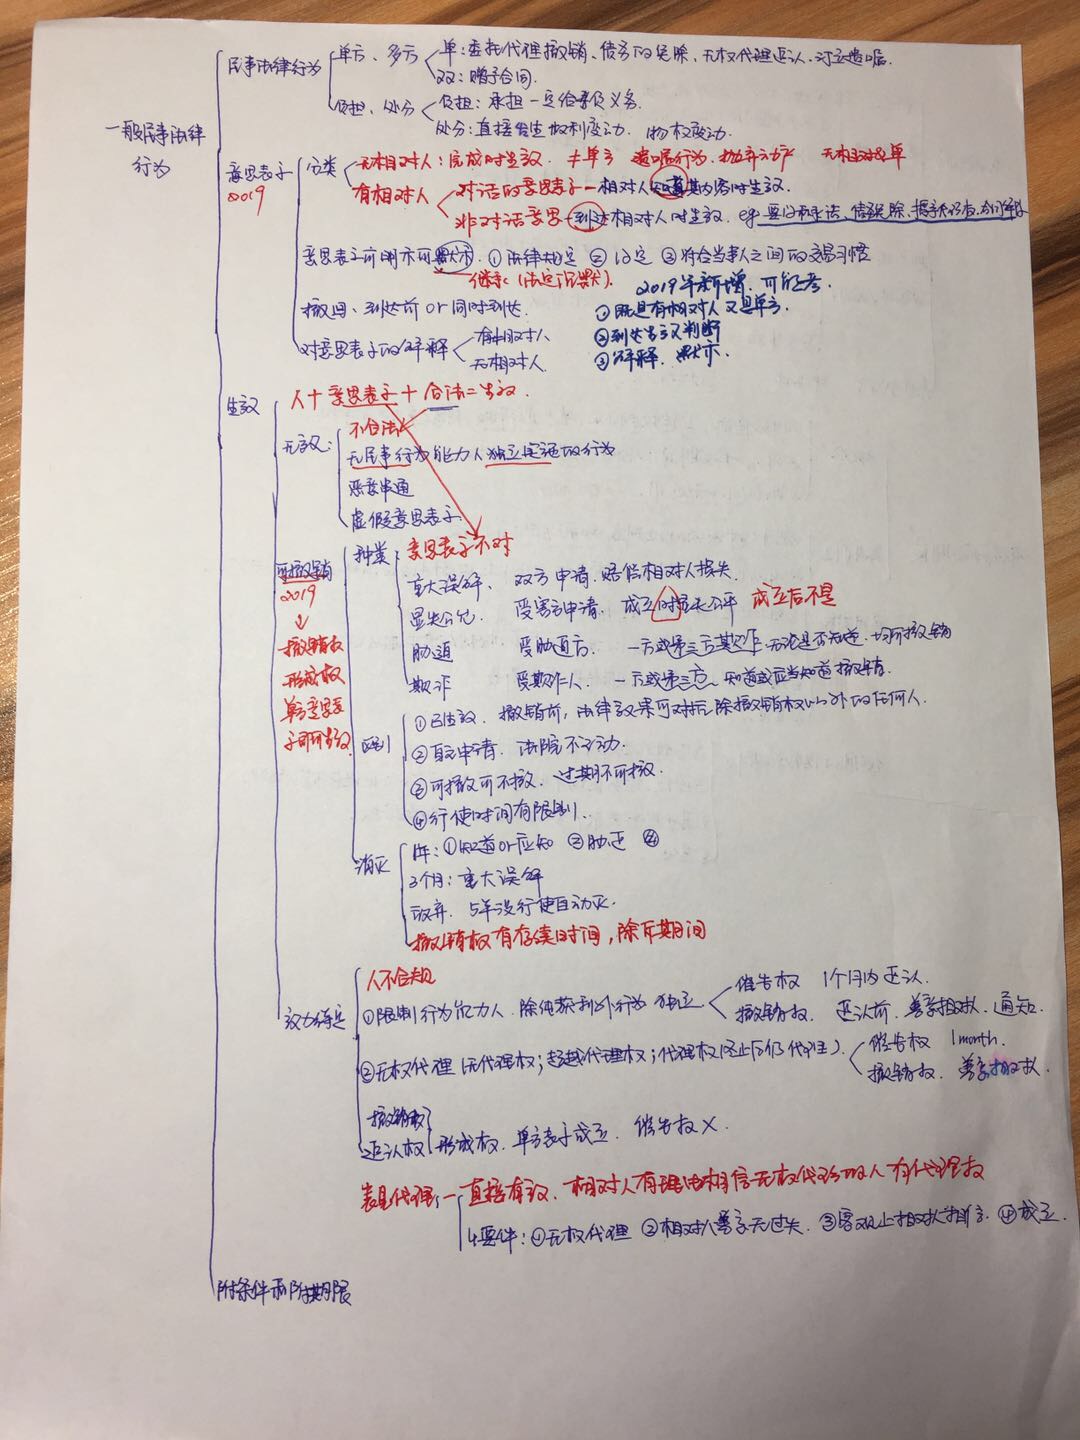 一般民事法律
行为
民事法律行为
单方、多方
单：委托代理撤销、债务的免除、无权代理追认、订立遗嘱。
双：赠予合同。
负担、处分
负担：承担一定给予义务
处分：直接发生权利变动、物权变动。
意思表示
2019
分类
无相对人：完成时生效 ≠单方 遗嘱行为、抛弃动产 无相对≤单
有相对人
对话的意思表示—相对人知道其内容时生效.
非对话意思—到达相对人时生效. eg
意思表示有明示可默示. ①法律规定 ②约定 ③符合当事人之间的交易习惯
继承（法定沉默）.
撤回、到达前 or 同时到达.
对意思表示的解释
有相对人
无相对人.
2019年新增、可能考.
①既是有相对人又是单方.
②到达主义判断
③解释、默示.
生效
人+意思表示+合法=生效.
无效:
不合法
无民事行为能力人独立实施的行为
恶意串通
虚假意思表示.
可撤销
2019
↓
撤销权
形成权
单方意思表
示即可生效
种类
意思表示不对
重大误解、 双方申请、赔偿相对人损失.
显失公允 受害方申请、成立时显失公平 成立后不是
胁迫 受胁迫方. 一方或第三方欺诈,无论是否知道、均可撤销
欺诈 受欺诈人. 一方或第三方、知道或应当知道 撤销.
区别
①已生效、撤销前,法律效果可对抗除撤销权以外的任何人.
②自主申请、法院不主动.
③可撤可不撤、过期不可撤.
④行使时间有限制.
消灭
1年：①知道or应知 ②胁迫
3个月：重大误解
放弃. 5年没行使自动灭.
撤销权有存续时间,除斥期间
效力待定
人不合规
①限制行为能力人、除纯获利外行为 独立
催告权 1个月内 追认.
撤销权. 追认前、善意相对人、通知.
②无权代理（无代理权；超越代理权；代理权终止后仍代理）.
催告权 1month.
撤销权. 善意相对人.
撤销权
追认权
形成权、单方表示成立. 催告权 X.
表见代理:—直接有效、相对人有理由相信无权代理的人有代理权
4要件：①无权代理 ②相对人善意无过失. ③客观上相对人 ④成立.
附条件和附期限